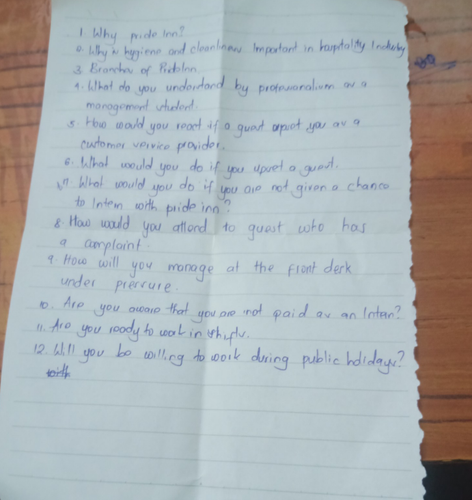 1. Why pride Inn?
2. Why is hygiene and cleanliness Important in hospitality Industry
3. Branches of PrideInn
4. What do you understand by professionalism as a
management student.
5. How would you react if a guest upset you as a
customer service provider.
6. What would you do if you upset a guest.
7. What would you do if you are not given a chance
to Intern with pride inn?
8. How would you attend to guest who has
a complaint.
9. How will you manage at the front desk
under pressure.
10. Are you aware that you are not paid as an Intern?
11. Are you ready to work in shifts.
12. Will you be willing to work during public holidays?